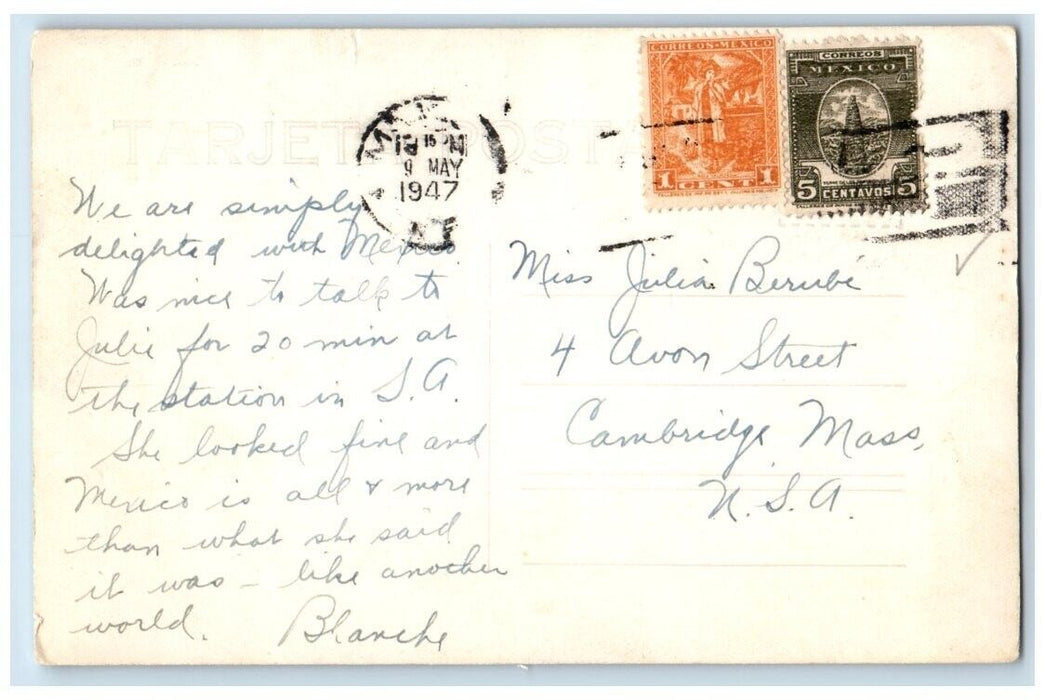 TARJETA POSTA
CORREOS-MEXICO
1 CENT 1
CORREOS
MEXICO
5 CENTAVOS 5
9 MAY
1947
We are simply
delighted with Mexico.
Was nice to talk to
Julie for 20 min at
the station in S.A.
She looked fine and
Mexico is all & more
than what she said
it was – like another
world. Blanche
Miss Julia Berubé
4 Avon Street
Cambridge Mass,
U.S.A.